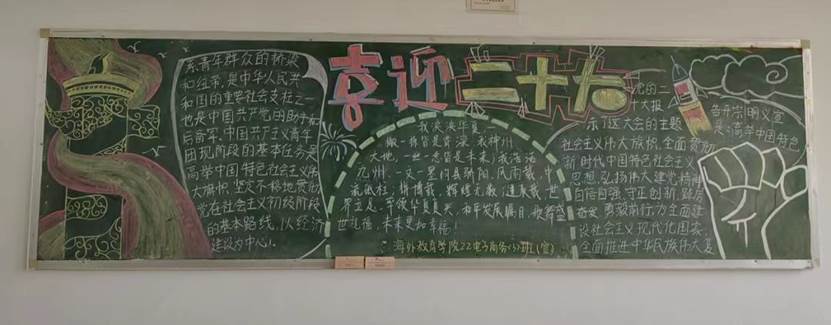 喜迎二十大
系青年群众的桥梁
和纽带,是中华人民共
和国的重要社会支柱之一
也是中国共产党的助手和
后备军。中国共产主义青年
团现阶段的基本任务是
高举中国特色社会主义伟
大旗帜,坚定不移地贯彻
党在社会主义初级阶段
的基本路线,以经济
建设为中心
我泱泱华夏
一撇一捺皆是
神州
大地,一思一念皆是未来;我浩浩
九州,一文一墨
世祝福,未来更加幸福!
海外教育学院22电子商务(3)班(宣)
党的二
十大报
告开宗明义宣
示了这次大会的主题
是:高举中国特色
社会主义伟大旗帜,全面贯彻
新时代中国特色社会主义
思想,弘扬伟大建党精神,
自信自强、守正创新,踔厉
奋发、勇毅前行,为全面建
设社会主义现代化国家、
全面推进中华民族伟大复